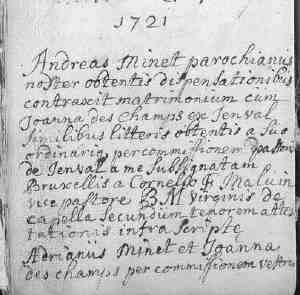 1721
Andreas Minet parochianus
noster obtentis dispensationibus
contraxit matrimonium cum
Joanna des Champs ex Jenval
similibus litteris obtentis a suo
ordinario, per commissionem pastoris
de Jenval a me subsignatam
Bruxellis a Cornelio
vice pastore B M Virginis de
capella secundum tenorem attes
tationis infra scripte
Adrianus Minet et Joanna
des champs per commissionem vestram